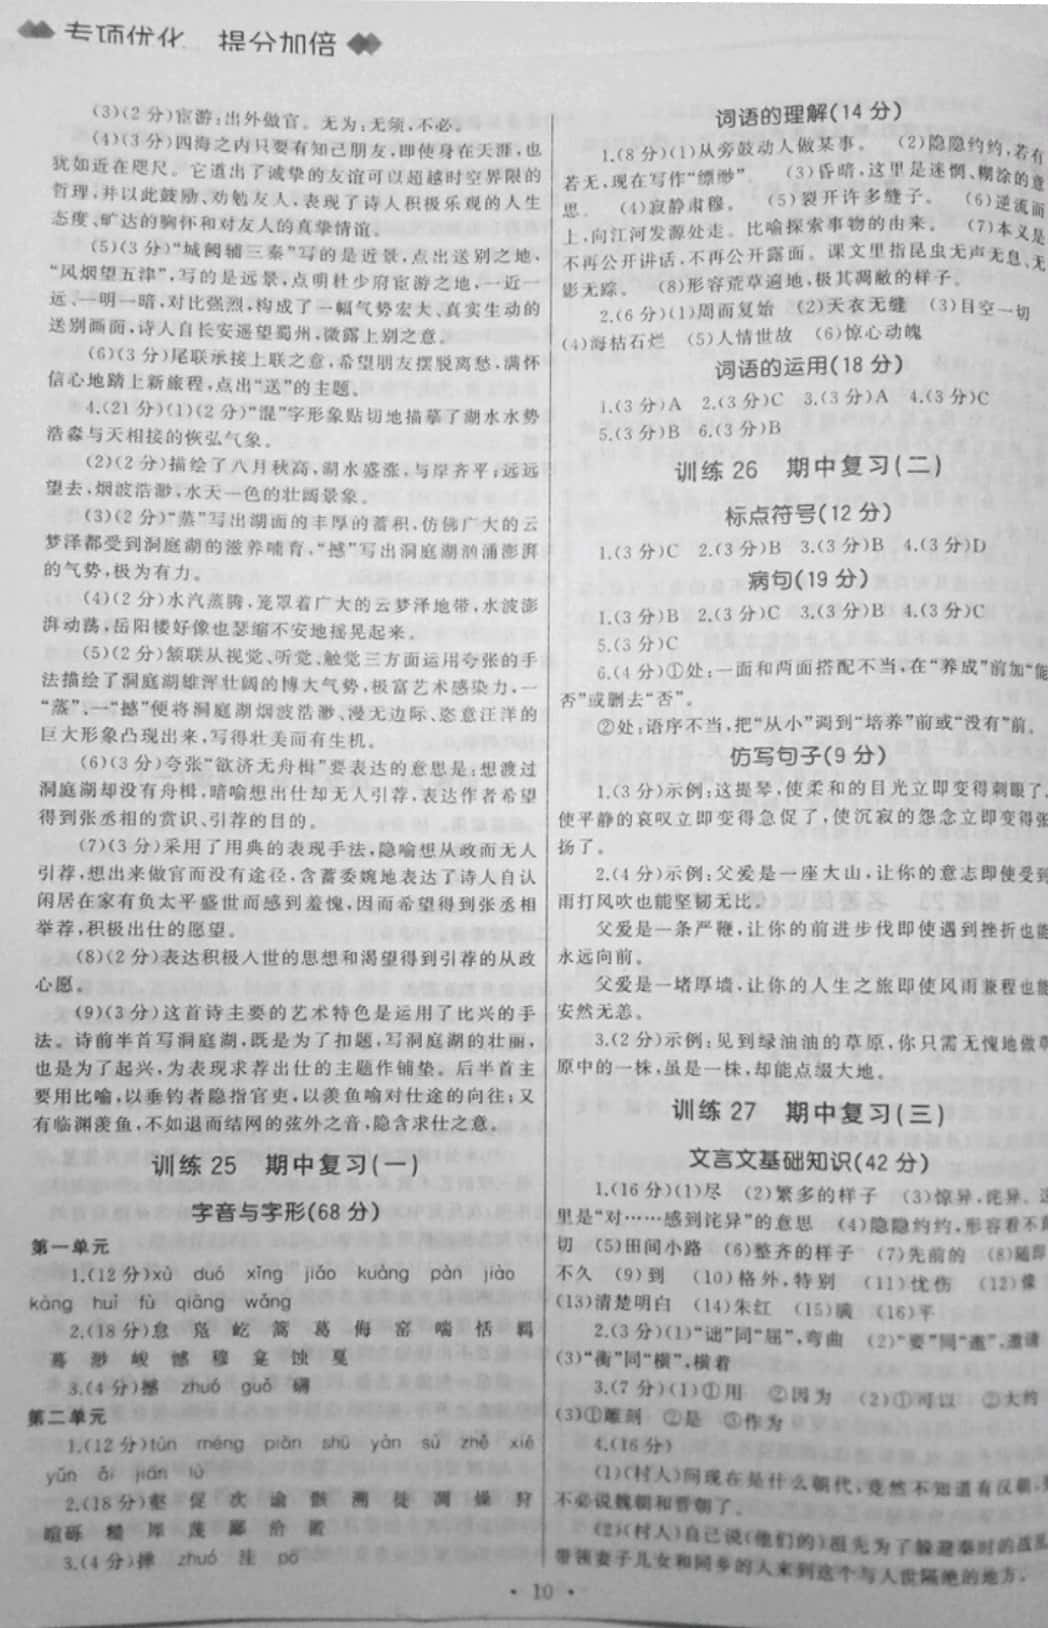 专项优化 提分加倍
(3)(2分)宦游:出外做官。无为:无须,不必。
(4)(3分)四海之内只要有知己朋友,即使身在天涯,也
犹如近在咫尺。它道出了诚挚的友谊可以超越时空界限的
哲理,并以此鼓励、劝勉友人,表现了诗人积极乐观的人生
态度、旷达的胸怀和对友人的真挚情谊。
(5)(3分)“城阙辅三秦”写的是近景,点出送别之地,
“风烟望五津”,写的是远景,点明杜少府宦游之地,一近一
远、一明一暗,对比强烈,构成了一幅气势宏大、真实生动的
送别画面,诗人自长安遥望蜀州,微露上别之意。
(6)(3分)尾联承接上联之意,希望朋友摆脱离愁,满怀
信心地踏上新旅程,点出“送”的主题。
4.(21分)(1)(2分)“混”字形象贴切地描摹了湖水水势
浩淼与天相接的恢弘气象。
(2)(2分)描绘了八月秋高,湖水盛涨,与岸齐平;远远
望去,烟波浩渺,水天一色的壮阔景象。
(3)(2分)“蒸”写出湖面的丰厚的蓄积,仿佛广大的云
梦泽都受到洞庭湖的滋养哺育,“撼”写出洞庭湖汹涌澎湃
的气势,极为有力。
(4)(2分)水汽蒸腾,笼罩着广大的云梦泽地带,水波澎
湃动荡,岳阳楼好像也瑟缩不安地摇晃起来。
(5)(2分)颔联从视觉、听觉、触觉三方面运用夸张的手
法描绘了洞庭湖雄浑壮阔的博大气势,极富艺术感染力,一
“蒸”、一“撼”便将洞庭湖烟波浩渺、漫无边际、恣意汪洋的
巨大形象凸现出来,写得壮美而有生机。
(6)(3分)夸张“欲济无舟楫”要表达的意思是:想渡过
洞庭湖却没有舟楫,暗喻想出仕却无人引荐,表达作者希望
得到张丞相的赏识、引荐的目的。
(7)(3分)采用了用典的表现手法,隐喻想从政而无人
引荐,想出来做官而没有途径,含蓄委婉地表达了诗人自认
闲居在家有负太平盛世而感到羞愧,因而希望得到张丞相
举荐,积极出仕的愿望。
(8)(2分)表达积极入世的思想和渴望得到引荐的从政
心愿。
(9)(3分)这首诗主要的艺术特色是运用了比兴的手
法。诗前半首写洞庭湖,既是为了扣题,写洞庭湖的壮丽,
也是为了起兴,为表现求荐出仕的主题作铺垫。后半首主
要用比喻,以垂钓者隐指官吏,以羡鱼喻对仕途的向往;又
有临渊羡鱼,不如退而结网的弦外之音,隐含求仕之意。
训练25 期中复习(一)
字音与字形(68分)
第一单元
1.(12分)xù duó xīng jiǎo kuàng pàn jiào
kàng huǐ fù qiāng wǎng
2.(18分)怠 茑 屹 篙 葛 侮 窑 喘 恬 羁
蓦 渺 峻 憾 穆 龛 蚀 戛
3.(4分)撼 zhuó guō 磷
第二单元
1.(12分)tún méng piān shū yàn sù zhě xié
yǔn ǎi jiān lù
2.(18分)壑 促 次 谕 骸 溯 徒 凋 燥 狩
暄砾 糙 厚 蔑 鄙 给 匿
3.(4分)掸 zhuó 洼 pō
词语的理解(14分)
1.(8分)(1)从旁鼓动人做某事。 (2)隐隐约约,若有
若无,现在写作“缥缈”。 (3)昏暗,这里是迷惘、糊涂的意
思。 (4)寂静肃穆。 (5)裂开许多缝子。 (6)逆流而
上,向江河发源处走。比喻探索事物的由来。 (7)本义是
不再公开讲话,不再公开露面。课文里指昆虫无声无息、无
影无踪。 (8)形容荒草遍地,极其凋敝的样子。
2.(6分)(1)周而复始 (2)天衣无缝 (3)目空一切
(4)海枯石烂 (5)人情世故 (6)惊心动魄
词语的运用(18分)
1.(3分)A 2.(3分)C 3.(3分)A 4.(3分)C
5.(3分)B 6.(3分)B
训练26 期中复习(二)
标点符号(12分)
1.(3分)C 2.(3分)B 3.(3分)B 4.(3分)D
病句(19分)
1.(3分)B 2.(3分)C 3.(3分)B 4.(3分)C
5.(3分)C
6.(4分)①处:一面和两面搭配不当,在“养成”前加“能
否”或删去“否”。
②处:语序不当,把“从小”调到“培养”前或“没有”前。
仿写句子(9分)
1.(3分)示例:这提琴,使柔和的目光立即变得刺眼了,
使平静的哀叹立即变得急促了,使沉寂的怨念立即变得张
扬了。
2.(4分)示例:父爱是一座大山,让你的意志即使受到
雨打风吹也能坚韧无比。
父爱是一条严鞭,让你的前进步伐即使遇到挫折也能
永远向前。
父爱是一堵厚墙,让你的人生之旅即使风雨兼程也能
安然无恙。
3.(2分)示例:见到绿油油的草原,你只需无愧地做草
原中的一株,虽是一株,却能点缀大地。
训练27 期中复习(三)
文言文基础知识(42分)
1.(16分)(1)尽 (2)繁多的样子 (3)惊异,诧异。这
里是“对……感到诧异”的意思 (4)隐隐约约,形容看不真
切 (5)田间小路 (6)整齐的样子 (7)先前的 (8)随即
不久 (9)到 (10)格外,特别 (11)忧伤 (12)像
(13)清楚明白 (14)朱红 (15)满 (16)平
2.(3分)(1)“诎”同“屈”,弯曲 (2)“要”同“邀”,邀请
(3)“衡”同“横”,横着
3.(7分)(1)①用 ②因为 (2)①可以 ②大约
(3)①雕刻 ②是 ③作为
4.(16分)
(1)(村人)问现在是什么朝代,竟然不知道有汉朝,更
不必说魏朝和晋朝了。
(2)(村人)自己说(他们的)祖先为了躲避秦时的战乱
带领妻子儿女和同乡的人来到这个与人世隔绝的地方。
• 10 •